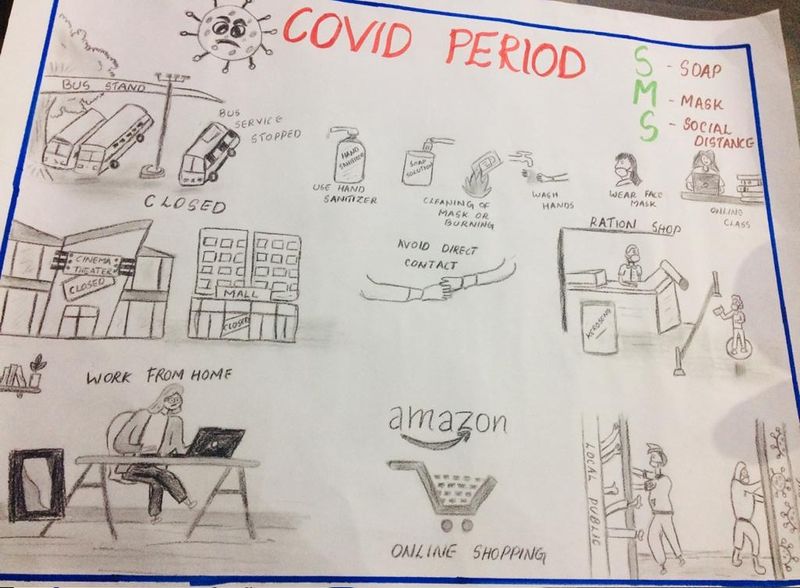 COVID PERIOD
S - SOAP
M - MASK
S - SOCIAL
DISTANCE
BUS STAND
BUS
SERVICE
STOPPED
HAND
SANITIZER
USE HAND
SANITIZER
SOAP
SOLUTION
CLEANING OF
MASK OR
BURNING
WASH
HANDS
WEAR FACE
MASK
ONLINE
CLASS
CLOSED
CINEMA
THEATER
CLOSED
MALL
CLOSED
AVOID DIRECT
CONTACT
RATION SHOP
KEROSENE
WORK FROM HOME
amazon
ONLINE SHOPPING
LOCAL PUBLIC